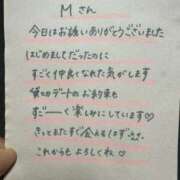 Mさん
今日はお誘いありがとうございました
はじめましてだったのに
すごく仲良くなれた気がします
貸切デートのお約束も
すご——く楽しみにしています♡
きっとまたすぐ会えるはず
これからもよろしくね♡